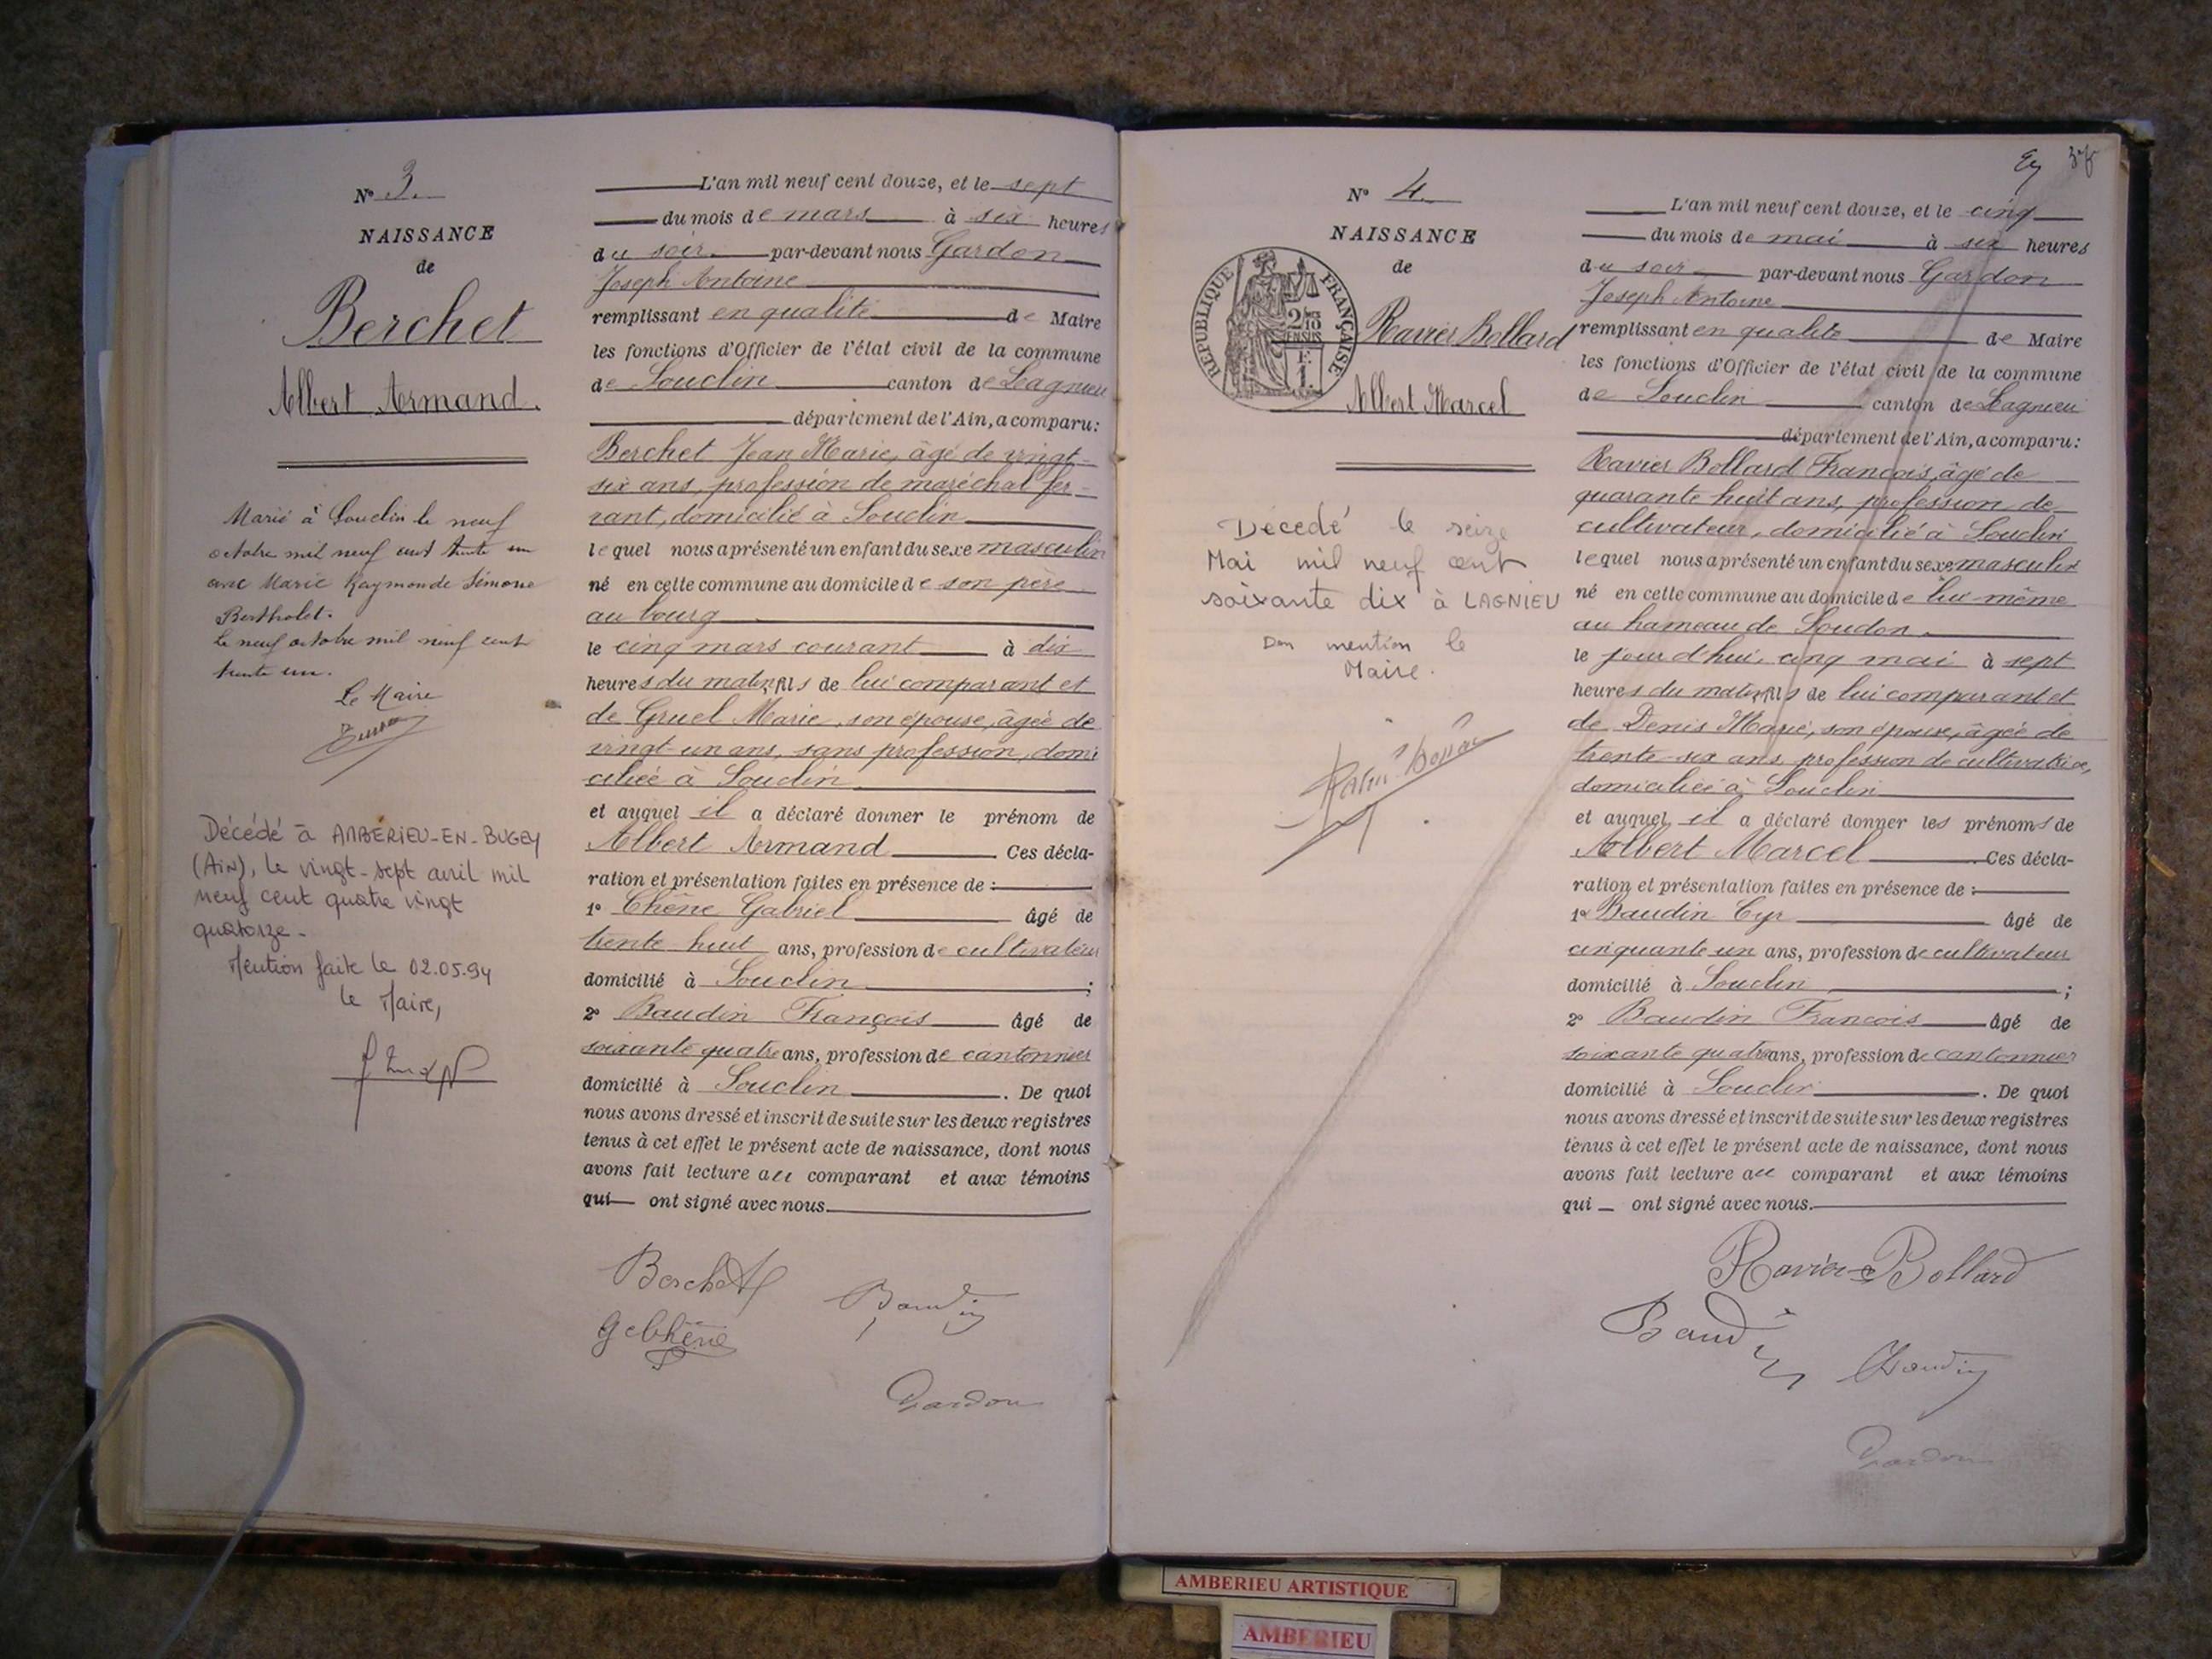 N° 3.
NAISSANCE
de
Berchet
Albert Armand.
Marié à Souclin le neuf
octobre mil neuf cent trente un
avec Marie Raymonde Simone
Bertholet.
Le neuf octobre mil neuf cent
trente un.
Le Maire
Décédé à AMBÉRIEU-EN-BUGEY
(AiN), le vingt-sept avril mil
neuf cent quatre vingt
quatorze.
Mention faite le 02.05.94
le Maire,
L'an mil neuf cent douze, et le sept
du mois de mars à six heures
du soir par-devant nous Gardon
Joseph Antoine
remplissant en qualité de Maire
les fonctions d'Officier de l'état civil de la commune
de Souclin canton de Lagnieu
département de l'Ain, a comparu:
Berchet Jean Marie, âgé de vingt-
six ans, profession de maréchal fer-
rant, domicilié à Souclin
lequel nous a présenté un enfant du sexe masculin
né en cette commune au domicile de son père
au bourg
le cinq mars courant à dix
heures du matin, fils de lui comparant et
de Gruel Marie, son épouse, âgée de
vingt-un ans, sans profession, domi
ciliée à Souclin
et auquel il a déclaré donner le prénom de
Albert Armand Ces décla-
ration et présentation faites en présence de :
1° Chêne Gabriel âgé de
trente huit ans, profession de cultivateur
domicilié à Souclin ;
2° Baudin François âgé de
soixante quatre ans, profession de cantonnier
domicilié à Souclin . De quoi
nous avons dressé et inscrit de suite sur les deux registres
tenus à cet effet le présent acte de naissance, dont nous
avons fait lecture au comparant et aux témoins
qui ont signé avec nous.
Berchet
Baudin
G Chêne
Gardon
37
N° 4.
NAISSANCE
de
RÉPUBLIQUE FRANÇAISE
Ravier Bollard
Albert Marcel
Décédé le seize
Mai mil neuf cent
soixante dix à LAGNIEU
Don mention le
Maire.
L'an mil neuf cent douze, et le cinq
du mois de mai à six heures
du soir par-devant nous Gardon
Joseph Antoine
remplissant en qualité de Maire
les fonctions d'Officier de l'état civil de la commune
de Souclin canton de Lagnieu
département de l'Ain, a comparu:
Ravier Bollard François, âgé de
quarante huit ans, profession de
cultivateur, domicilié à Souclin
lequel nous a présenté un enfant du sexe masculin
né en cette commune au domicile de lui-même
au hameau de Soudon.
le jourd'hui, cinq mai à sept
heures du matin, fils de lui comparant et
de Denis Marie, son épouse, âgée de
trente-six ans, profession de cultivatrice,
domiciliée à Souclin
et auquel il a déclaré donner les prénoms de
Albert Marcel Ces décla-
ration et présentation faites en présence de :
1° Baudin Cyr âgé de
cinquante un ans, profession de cultivateur
domicilié à Souclin ;
2° Baudin François âgé de
soixante quatre ans, profession de cantonnier
domicilié à Souclin . De quoi
nous avons dressé et inscrit de suite sur les deux registres
tenus à cet effet le présent acte de naissance, dont nous
avons fait lecture au comparant et aux témoins
qui ont signé avec nous.
Ravier Bollard
Baudin
Baudin
Gardon
AMBERIEU ARTISTIQUE
AMBERIEU